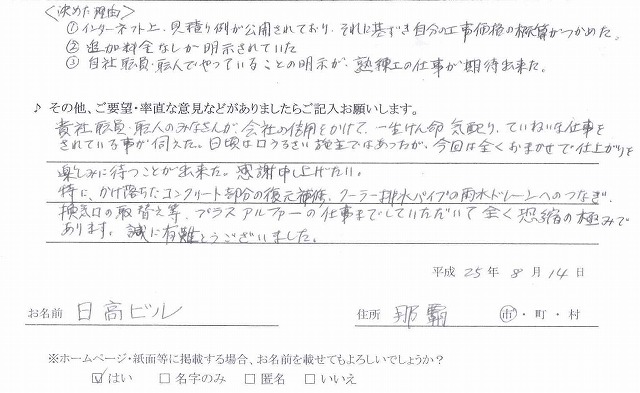 ＜決めた理由＞
①インターネット上、見積り例が公開されており、それに基ずき自分の工事価格の概算がつかめた。
②追加料金なしが明示されていた
③自社職員・職人でやっていることの明示が、熟練工の仕事が期待出来た。
♪ その他、ご要望・率直な意見などがありましたらご記入お願いします。
貴社職員・職人のみなさんが、会社の信用をかけて、一生けん命 気配り、ていねいな仕事を
されている事が伺えた。日頃は口うるさい施主ではあったが、今回は全くおまかせで仕上がりを
楽しみに待つことが出来た。感謝申し上げたい。
特に、かけ落ちたコンクリート部分の復元補修、クーラー排水パイプの雨水ドレーンへのつなぎ、
換気口の取替え等、プラスアルファーの仕事までしていただいて全く恐縮の極みで
あります。誠に有難とうございました。
平成 25 年 8 月 14 日
お名前 日高ビル 住所 那覇 市・町・村
※ホームページ・紙面等に掲載する場合、お名前を載せてもよろしいでしょうか？
☑はい □名字のみ □匿名 □いいえ